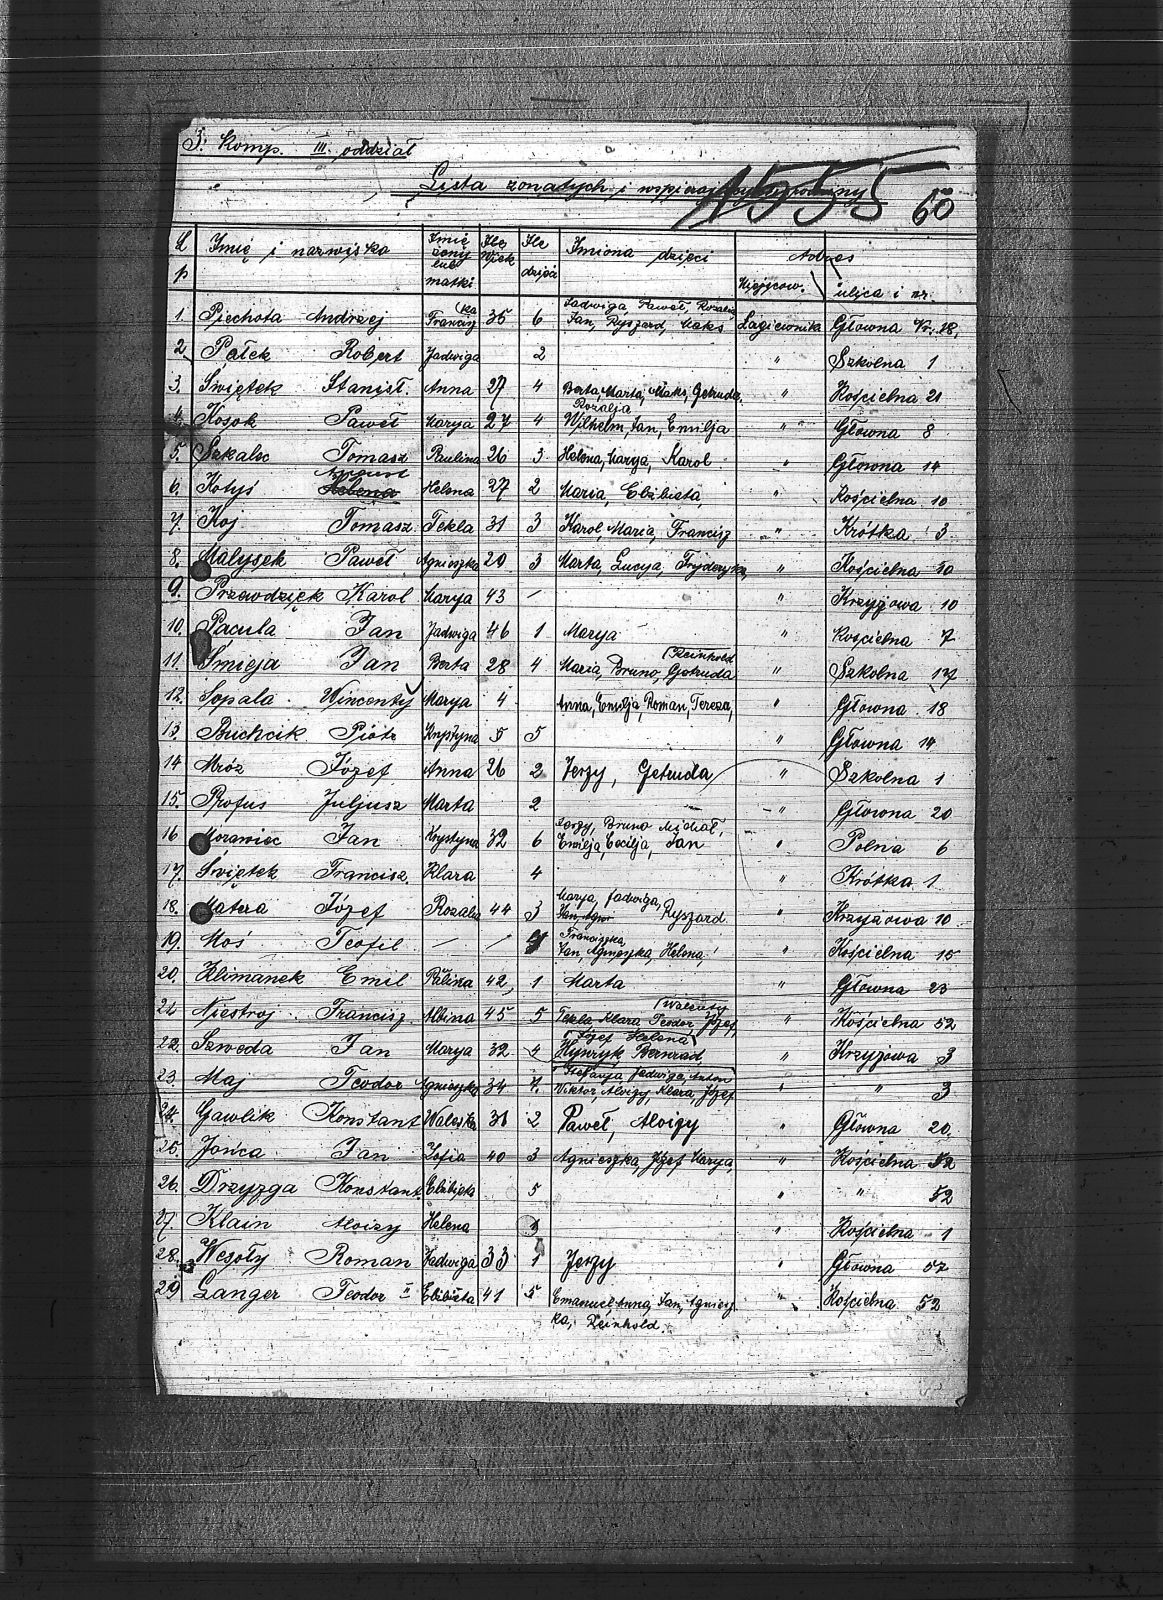 3. Komp. III. oddział
Lista żonatych i wspierających rodziny
1555 60
L p Imię i nazwisko Imię żony lub matki Ile Wiek Ile dzieci Imiona dzieci Adres
Miejscow. ulica i nr.
1. Piechota Andrzej Franciszka 35 6 Jadwiga Paweł, Rozalia, Jan, Ryszard, Maks Łagiewnika Główna Nr. 18.
2. Pałek Robert Jadwiga 2 " Szkolna 1
3. Świętek Stanisł. Anna 27 4 Berta, Marta, Maks, Getruda, " Kościelna 21
4. Kosok Paweł Marya 27 4 Rozalja Wilhelm, Jan, Emilja " Główna 8
5. Szkaloc Tomasz Paulina 26 3 Helena, Marya, Karol " Główna 14
6. Kotyś August Helena 27 2 Maria, Elżbieta, " Kościelna 10
7. Koj Tomasz Tekla 31 3 Karol, Maria, Francisz " Krótka 3
8. Małysek Paweł Agnieszka 20 3 Marta, Lucyja, Fryderyka, " Kościelna 10
9. Przewdzięk Karol Marya 43 / " Krzyżowa 10
10. Pacula Jan Jadwiga 46 1 Marya " Kościelna 7
11. Śmieja Jan Berta 28 4 Maria, Bruno, Getruda (Reinhold " Szkolna 17
12. Sopala Wincenty Marya 4 Anna, Emilja, Roman, Tereza, " Główna 18
13. Buchcik Piotr Krystyna 5 5 " Główna 14
14 Mróz Józef Anna 26 2 Jerzy, Getruda " Szkolna 1
15. Profus Juljusz Marta 2 " Główna 20
16 Morawiec Jan Krystyna 32 6 Jerzy, Bruno Michał, Emilja, Cecilja, Jan " Polna 6
17. Świętek Francisz. Klara 4 " Krótka 1
18. Matera Józef Rozalia 44 3 Marya, Jadwiga, Ryszard " Krzyżowa 10
19. Moś Teofil — / 4 Franciszka, Jan, Agnieszka, Helena, " Kościelna 15
20. Klimanek Emil Palina 42, 1 Marta " Główna 23
21 Niestroj Francisz. Albina 45 5 Tekla Klara Teodor, Józef, (Walenty " Kościelna 52
22. Szweda Jan Marya 32 4 (Józef Helena) Hynryk Bernrad " Krzyżowa 3
23. Maj Teodor Agnieszka 34 7. Stefanja, Jadwiga, Anton Viktor, Aloizy Klara, Józef " " 3
24. Gawlik Konstant Waleska 31 2 Paweł, Aloizy " Główna 20
25. Jońca Jan Zofia 40 3 Agnieszka, Józef Marya, " Kościelna 52
26. Drzyzga Konstant. Elżbieta 5 " " 52
27. Klain Aloizy Helena 1 " Kościelna 1
28. Wesoły Roman Jadwiga 33 1 Jerzy " Główna 57
29 Langer Teodor II Elżbieta 41 5 Emanuel, Anna, Jan, Agniesz " Kościelna 52
ka, Reinhold.